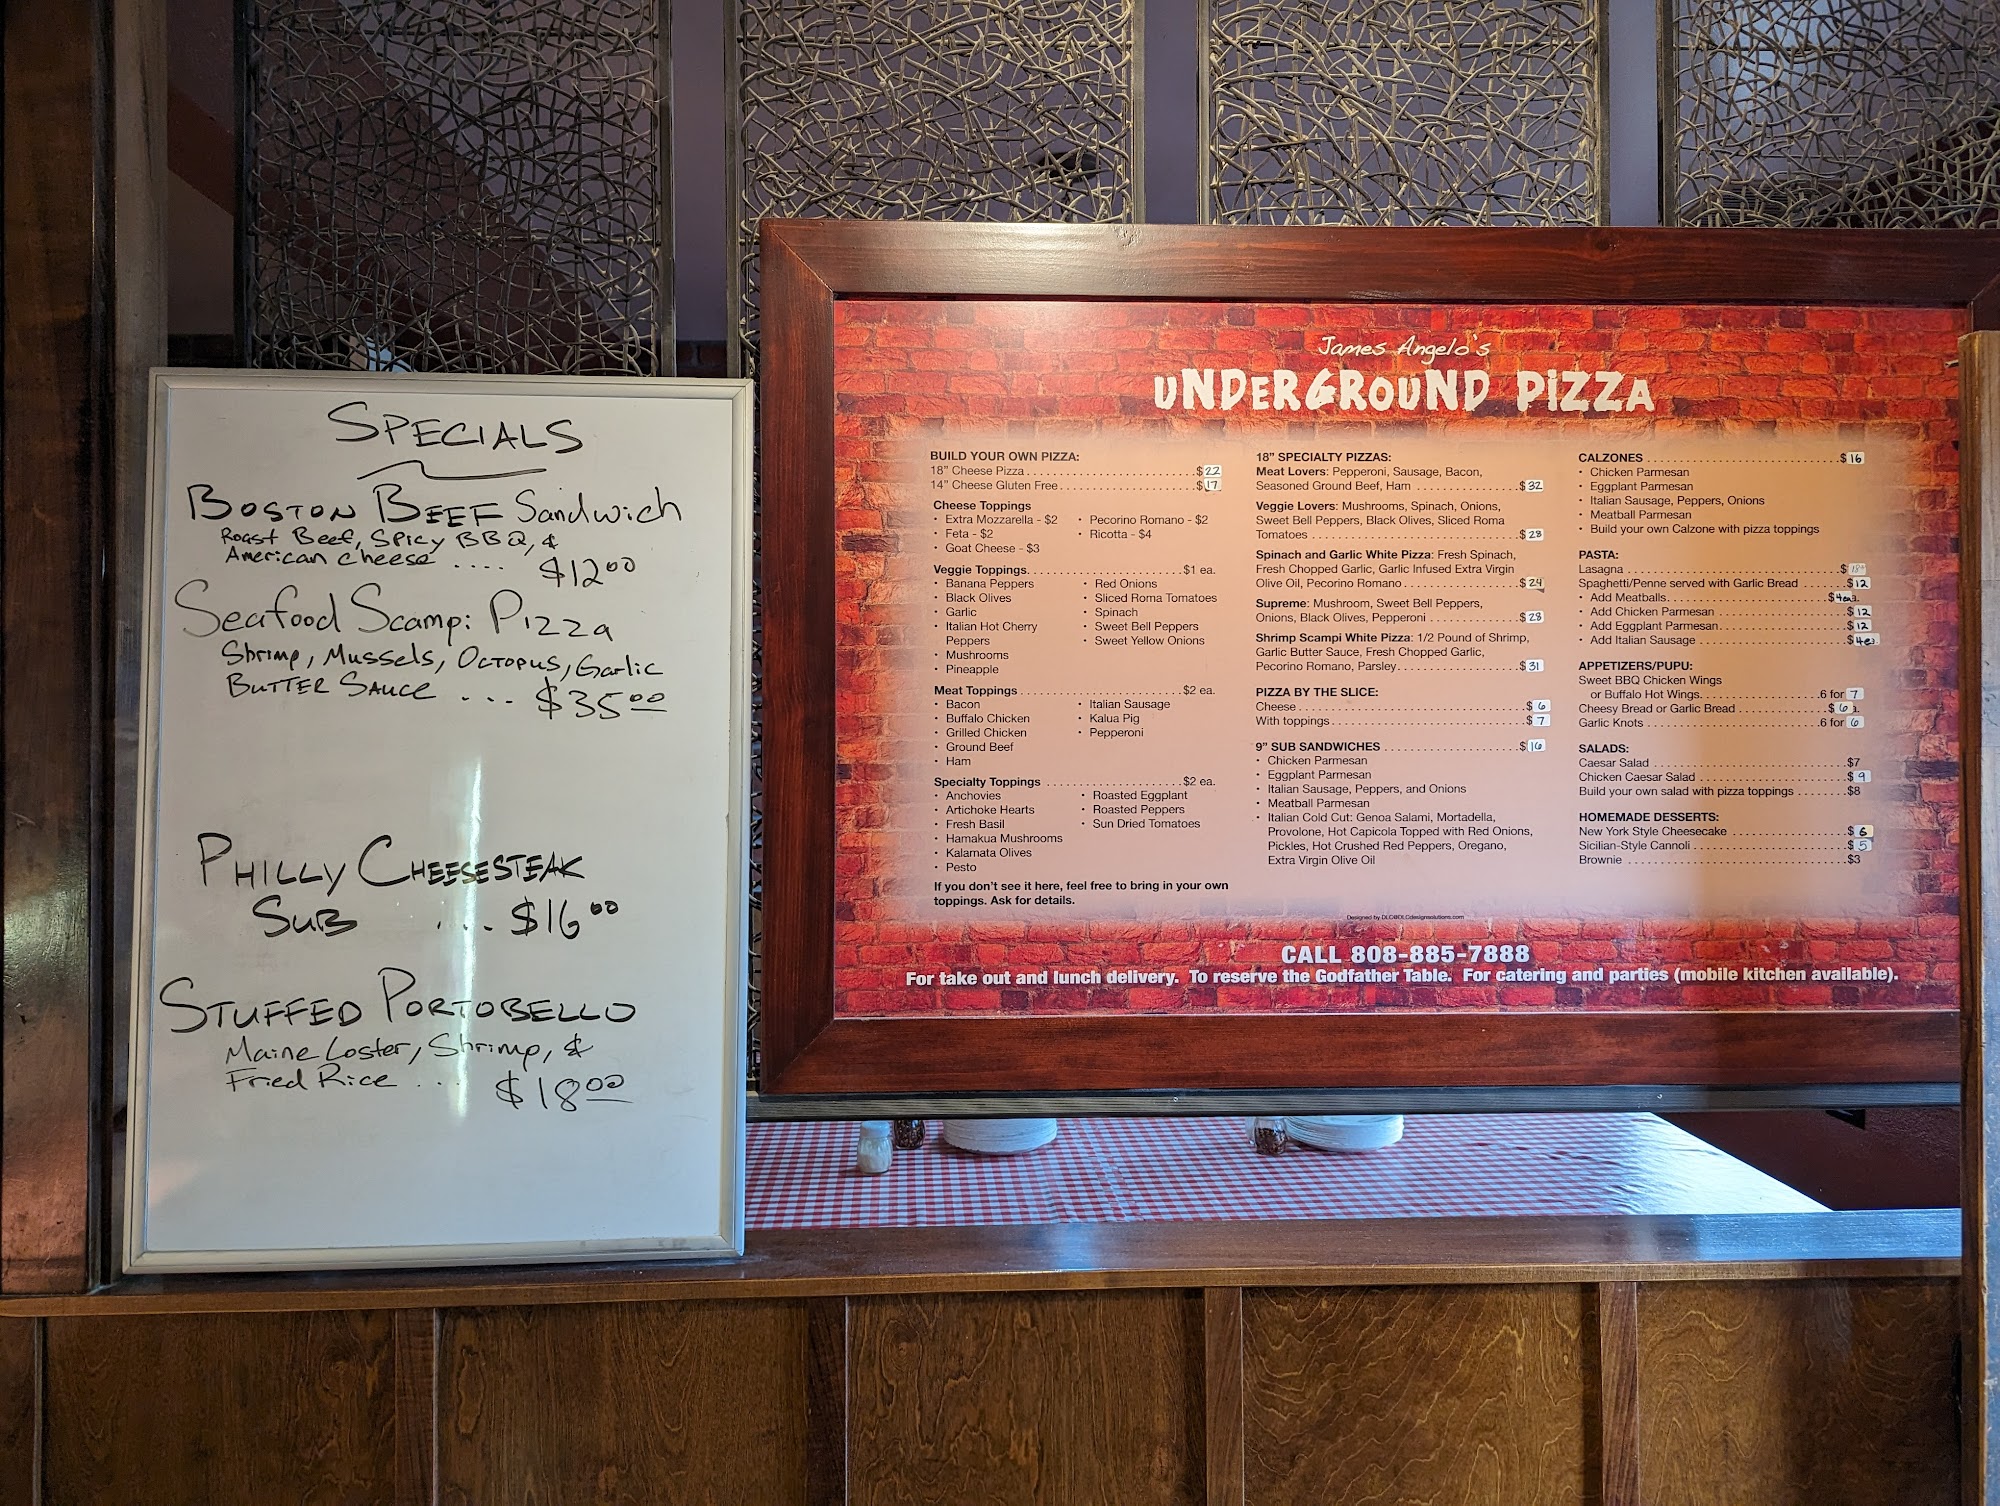 SPECIALS
BOSTON BEEF Sandwich
Roast Beef, Spicy BBQ, &
American cheese .... $12.00
Seafood Scampi Pizza
Shrimp, Mussels, Octopus, Garlic
BUTTER SAUCE .... $35.00
PHILLY CHEESESTEAK
SUB .... $16.00
STUFFED PORTOBELLO
Maine Lobster, Shrimp, &
Fried Rice ... $18.00
James Angelo's
UNDERGROUND PIZZA
BUILD YOUR OWN PIZZA:
18" Cheese Pizza $22
14" Cheese Gluten Free $17
Cheese Toppings
• Extra Mozzarella - $2
• Feta - $2
• Goat Cheese - $3
• Pecorino Romano - $2
• Ricotta - $4
Veggie Toppings $1 ea.
• Banana Peppers
• Black Olives
• Garlic
• Italian Hot Cherry
Peppers
• Mushrooms
• Pineapple
• Red Onions
• Sliced Roma Tomatoes
• Spinach
• Sweet Bell Peppers
• Sweet Yellow Onions
Meat Toppings $2 ea.
• Bacon
• Buffalo Chicken
• Grilled Chicken
• Ground Beef
• Ham
• Italian Sausage
• Kalua Pig
• Pepperoni
Specialty Toppings $2 ea.
• Anchovies
• Artichoke Hearts
• Fresh Basil
• Hamakua Mushrooms
• Kalamata Olives
• Pesto
• Roasted Eggplant
• Roasted Peppers
• Sun Dried Tomatoes
If you don't see it here, feel free to bring in your own
toppings. Ask for details.
18" SPECIALTY PIZZAS:
Meat Lovers: Pepperoni, Sausage, Bacon,
Seasoned Ground Beef, Ham $32
Veggie Lovers: Mushrooms, Spinach, Onions,
Sweet Bell Peppers, Black Olives, Sliced Roma
Tomatoes $28
Spinach and Garlic White Pizza: Fresh Spinach,
Fresh Chopped Garlic, Garlic Infused Extra Virgin
Olive Oil, Pecorino Romano $24
Supreme: Mushroom, Sweet Bell Peppers,
Onions, Black Olives, Pepperoni $28
Shrimp Scampi White Pizza: 1/2 Pound of Shrimp,
Garlic Butter Sauce, Fresh Chopped Garlic,
Pecorino Romano, Parsley $31
PIZZA BY THE SLICE:
Cheese $6
With toppings $7
9" SUB SANDWICHES $16
• Chicken Parmesan
• Eggplant Parmesan
• Italian Sausage, Peppers, and Onions
• Meatball Parmesan
• Italian Cold Cut: Genoa Salami, Mortadella,
Provolone, Hot Capicola Topped with Red Onions,
Pickles, Hot Crushed Red Peppers, Oregano,
Extra Virgin Olive Oil
CALZONES $16
• Chicken Parmesan
• Eggplant Parmesan
• Italian Sausage, Peppers, Onions
• Meatball Parmesan
• Build your own Calzone with pizza toppings
PASTA:
Lasagna $
Spaghetti/Penne served with Garlic Bread $12
• Add Meatballs $4ea.
• Add Chicken Parmesan $12
• Add Eggplant Parmesan $12
• Add Italian Sausage $4ea
APPETIZERS/PUPU:
Sweet BBQ Chicken Wings
or Buffalo Hot Wings 6 for 7
Cheesy Bread or Garlic Bread $6
Garlic Knots 6 for 6
SALADS:
Caesar Salad $7
Chicken Caesar Salad $9
Build your own salad with pizza toppings $8
HOMEMADE DESSERTS:
New York Style Cheesecake $6
Sicilian-Style Cannoli $5
Brownie $3
Designed by DLC@DLCdesignsolutions.com
CALL 808-885-7888
For take out and lunch delivery. To reserve the Godfather Table. For catering and parties (mobile kitchen available).